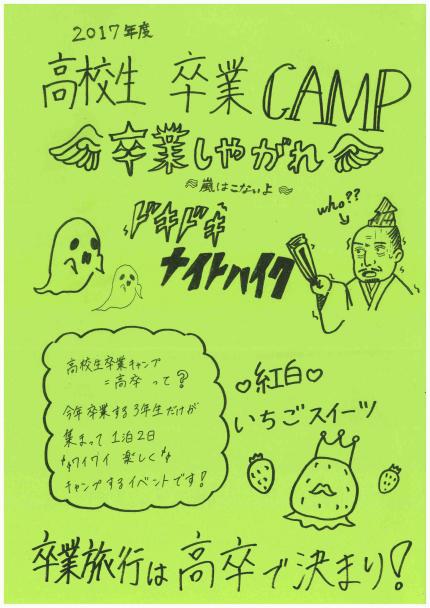 2017年度
高校生 卒業 CAMP
卒業しやがれ
≈嵐はこないよ≈
ドキドキ
ナイトハイク
who??
高校生卒業キャンプ
=高卒 って?
今年卒業する3年生だけが
集まって 1泊2日
ワイワイ 楽しく
キャンプするイベントです!
♡紅白♡
いちごスイーツ
卒業旅行は高卒で決まり!